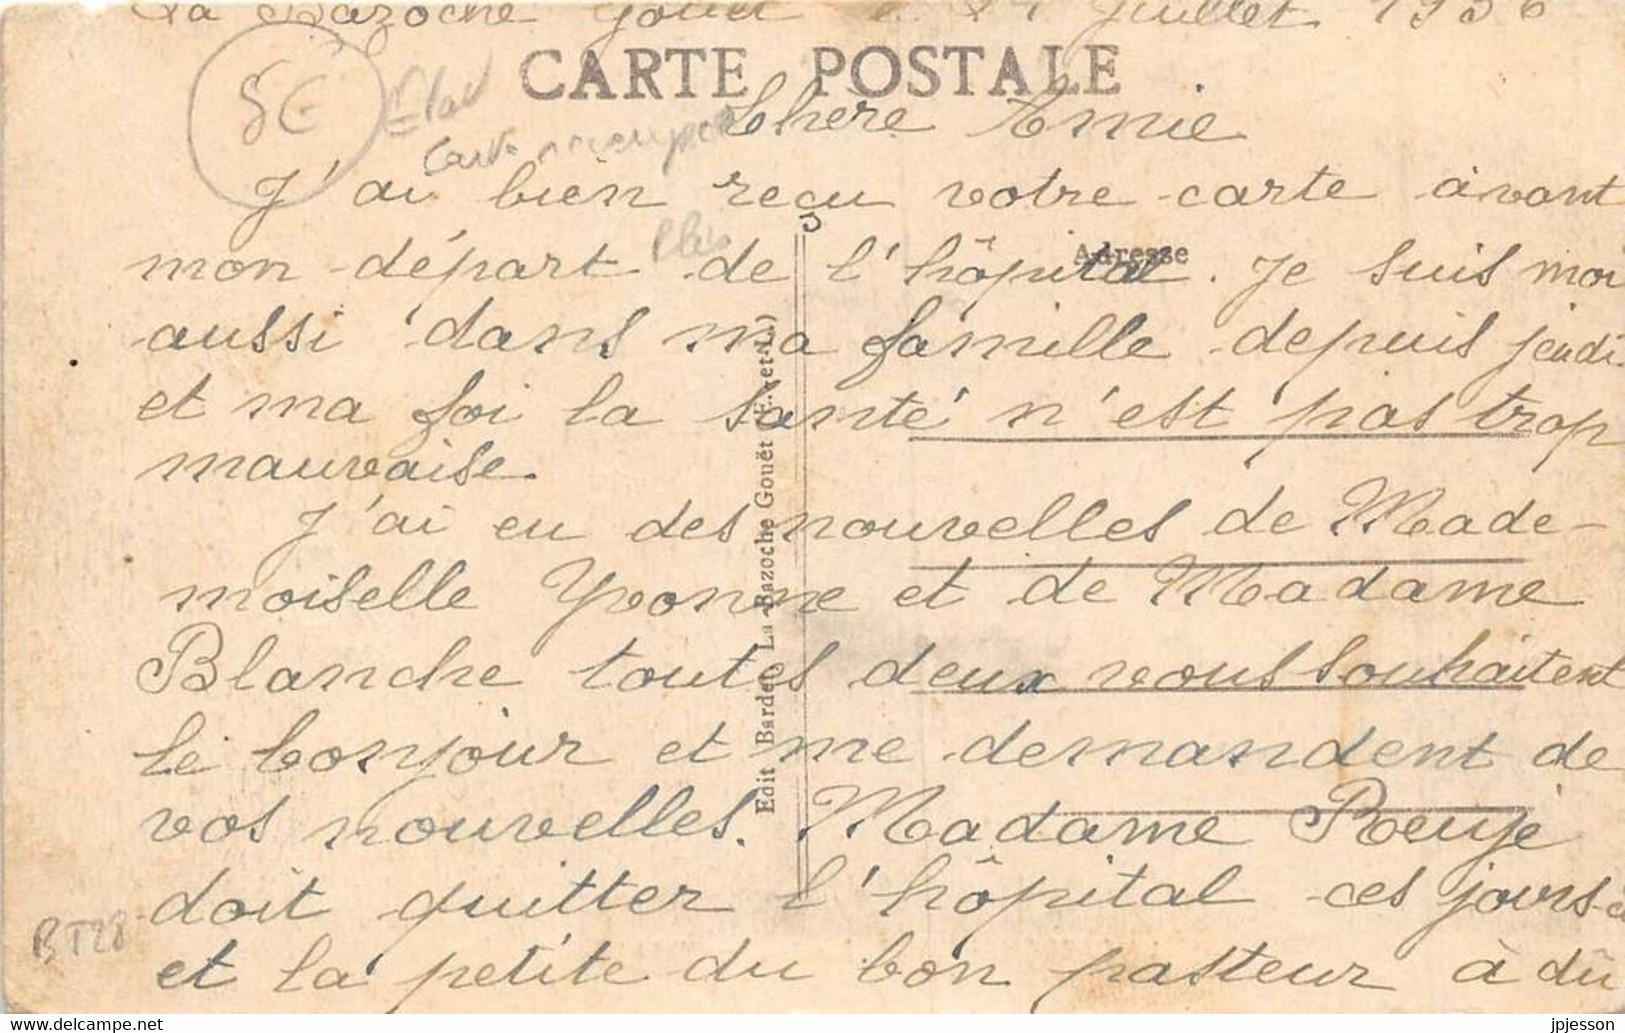 La Bazoche Gouet le juillet 1936
CARTE POSTALE
5€
Chere Amie
J'ai bien reçu votre carte avant
mon départ de l'hôpital. Je suis moi
Adresse
aussi dans ma famille depuis jeudi
et ma foi la santé n'est pas trop
mauvaise.
J'ai eu des nouvelles de Made-
moiselle Yvonne et de Madame
Blanche toutes deux vous souhaitent
le bonjour et me demandent de
vos nouvelles. Madame
doit quitter l'hôpital ces jours-c
et la petite du bon pasteur à dû
Edit Bardet, La Bazoche Gouët (E.-et-L.)
BT28
jpjesson